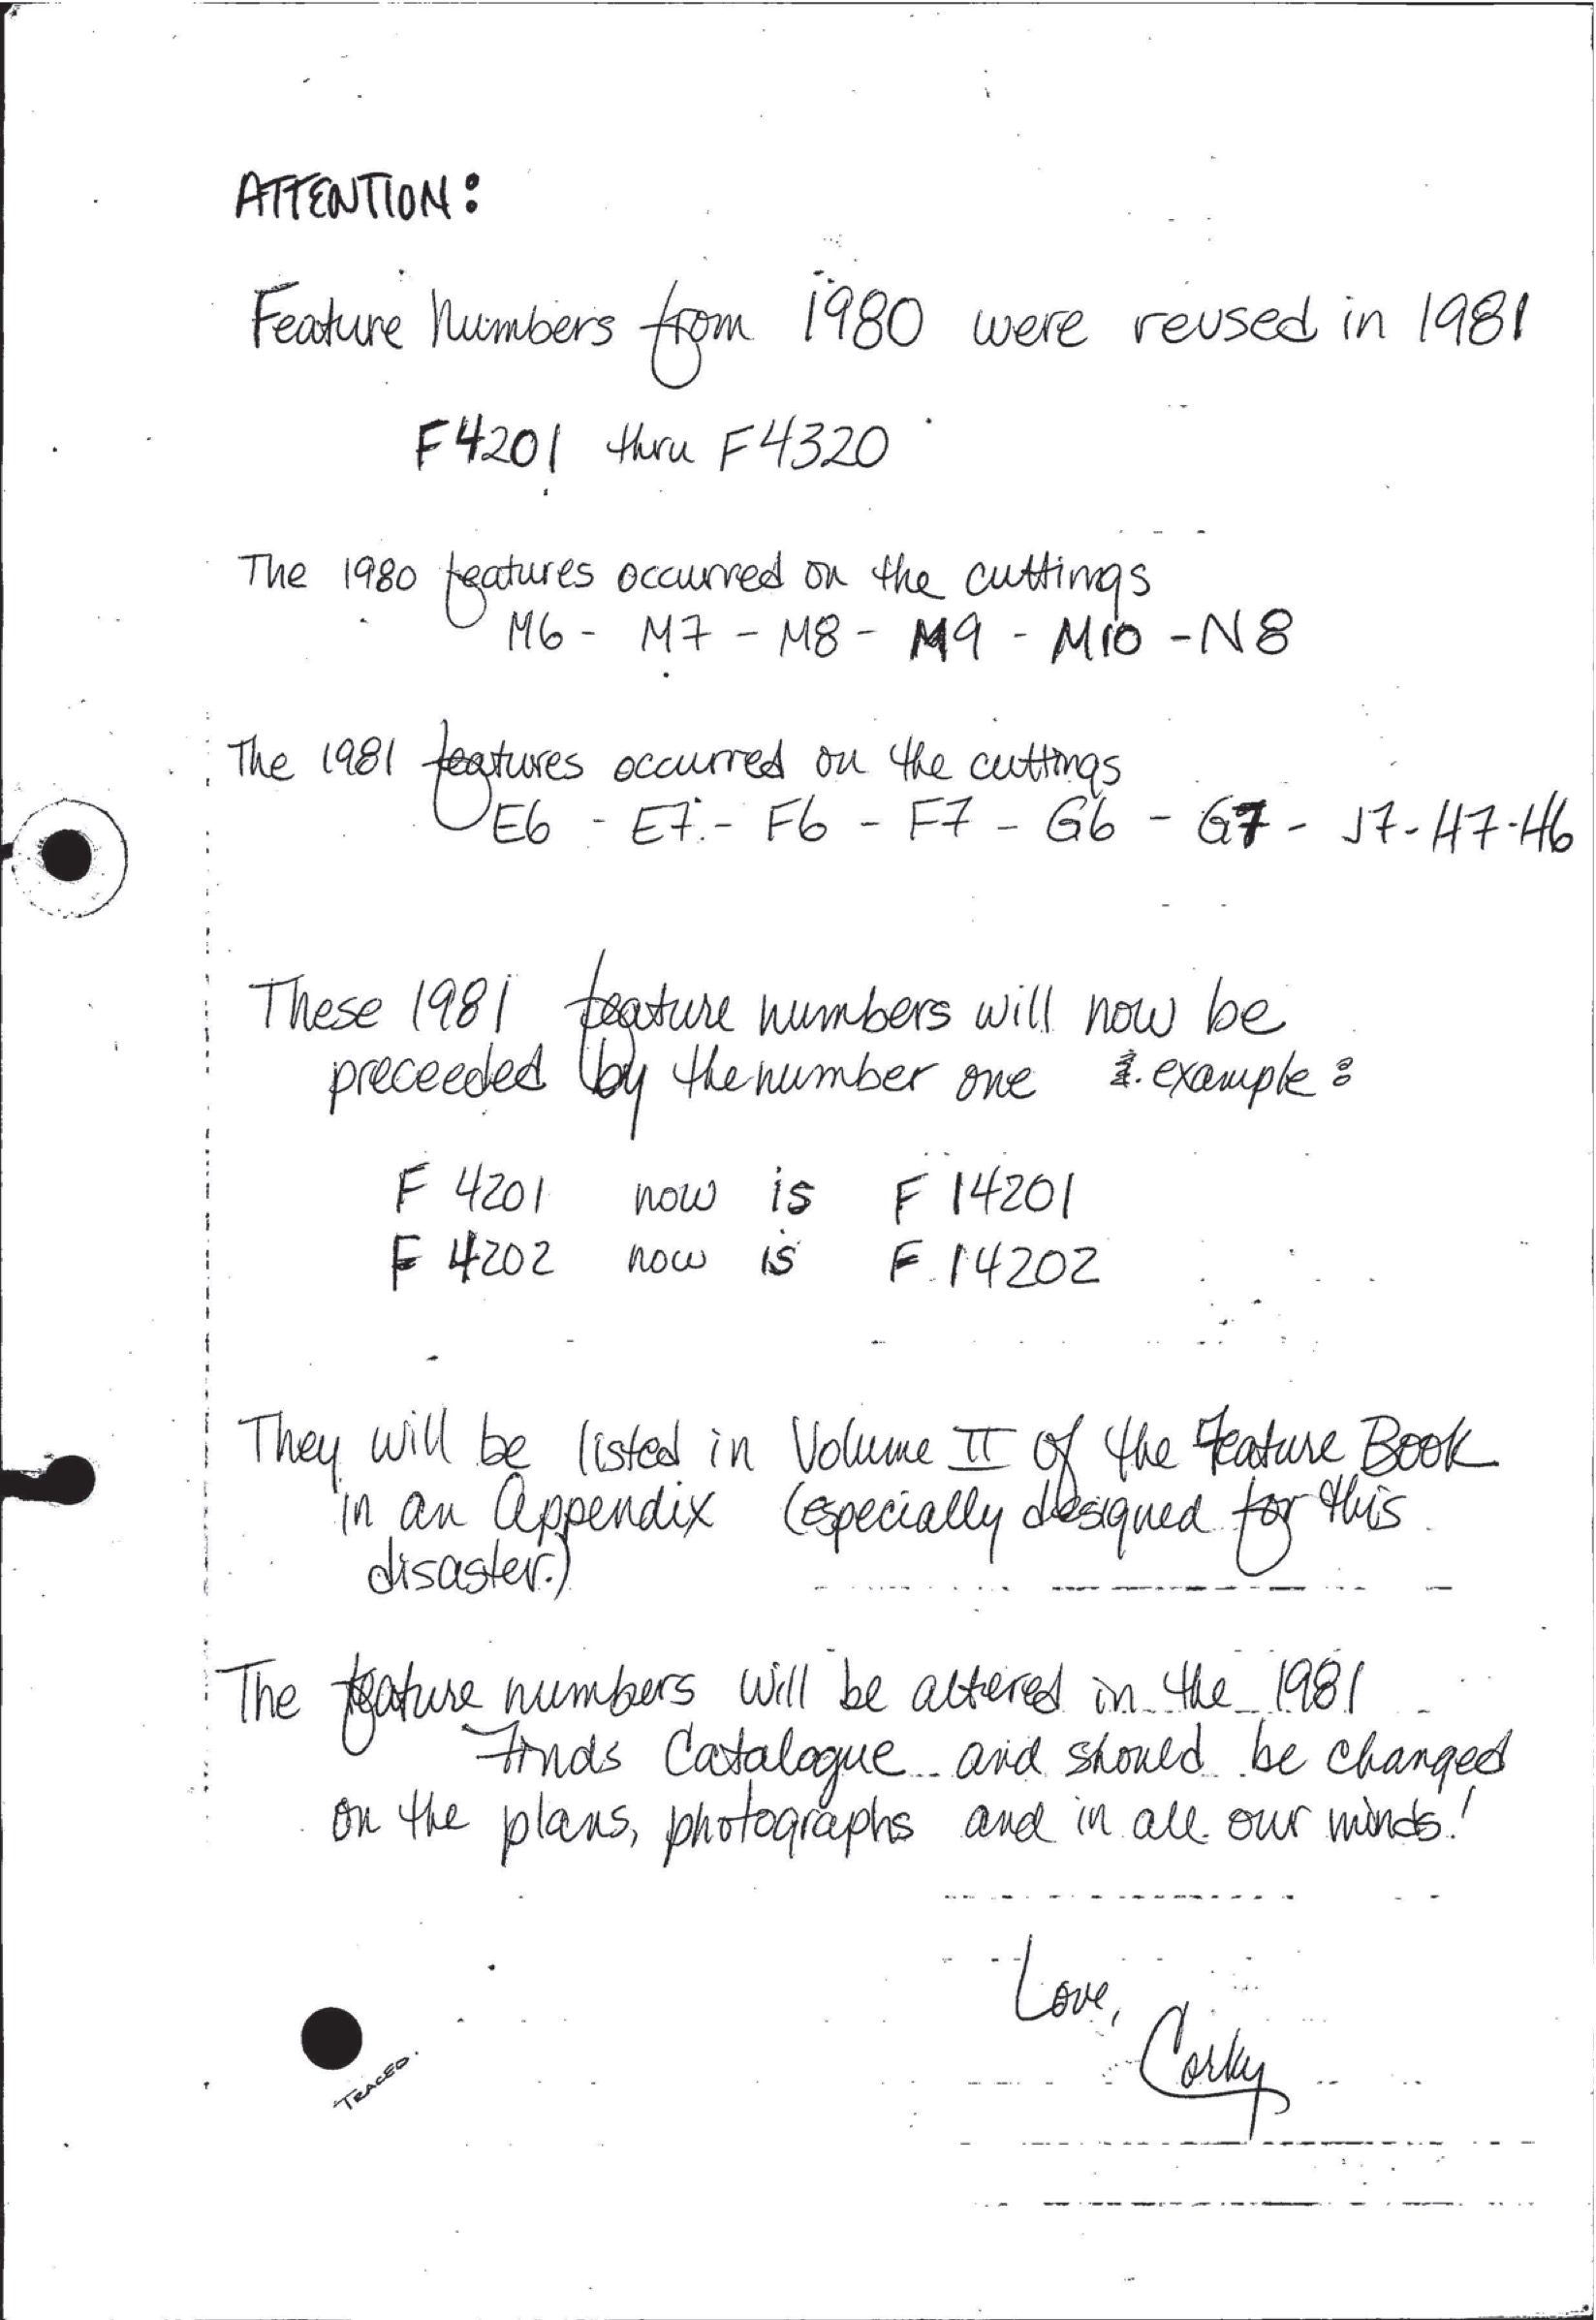 ATTENTION:
Feature Numbers from 1980 were reused in 1981
F4201 thru F4320
The 1980 features occurred on the cuttings
M6 - M7 - M8 - M9 - M10 - N8
The 1981 features occurred on the cuttings
E6 - E7 - F6 - F7 - G6 - G7 - J7 - H7 - H6
These 1981 feature numbers will now be
preceeded by the number one 1. example:
F 4201 now is F 14201
F 4202 now is F 14202
They will be listed in Volume II of the Feature Book
in an Appendix (especially designed for this
disaster.)
The feature numbers will be altered in the 1981
Finds Catalogue and should be changed
on the plans, photographs and in all our minds!
Love,
Corky
TRACED.